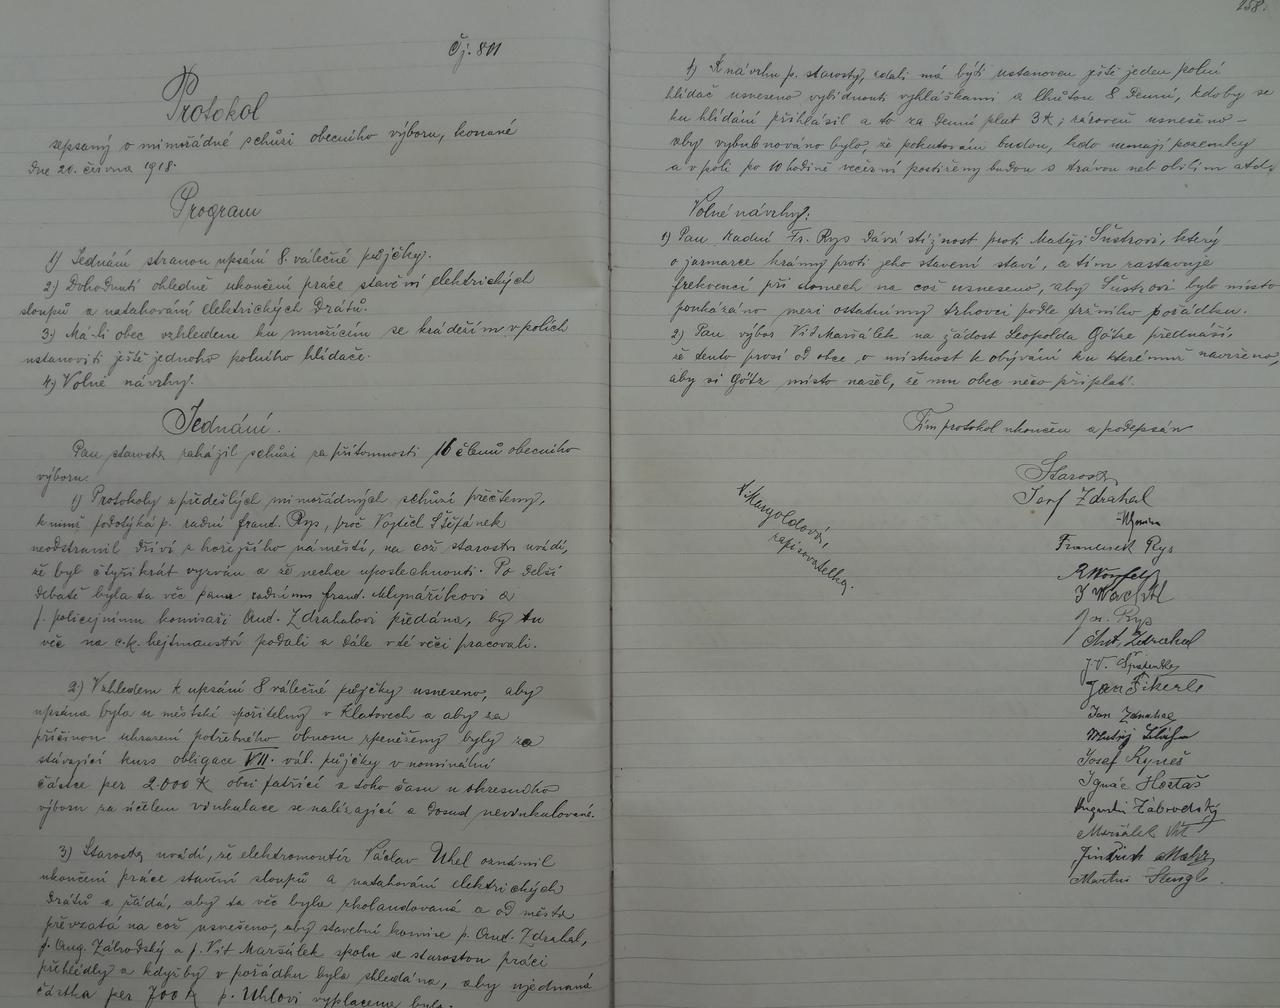 Čj. 801
Protokol
sepsaný o mimořádné schůzi obecního výboru, konané
dne 20. června 1918.
Program
1) Jednání stranou upsání 8. válečné půjčky.
2) Dohodnutí ohledně ukončení práce stavění elektrických
sloupů a natahování elektrických drátů.
3) Má-li obec vzhledem ku množícím se krádežím v polích
ustanoviti ještě jednoho polního hlídače.
4) Volné návrhy.
Jednání.
Pan starosta zahájil schůzi za přítomnosti 16 členů obecního
výboru.
1) Protokoly z předešlých mimořádných schůzí přečteny,
k nimž podotýká p. radní frant. Rys, proč Vojtěch Štěfánek
neodstranil dříví z hořejšího náměstí, na což starosta uvádí,
že byl čtyřikrát vyzván a že nechce uposlechnouti. Po delší
debatě byla ta věc panu radnímu frant. Mlynáříkovi a
p. policejnímu komisaři Ant. Zdrahalovi předána, by tu
věc na c.k. hejtmanství podali a dále v té věci pracovali.
2) Vzhledem k upsání 8 válečné půjčky usneseno, aby
upsána byla u městské spořitelny v Klatovech a aby za
příčinou uhrazení potřebného obnosu zpeněženy byly za
stávající kurs obligace VII. vál. půjčky v nominální
částce per 2.000 K obci patřící a toho času u okresního
výboru za účelem vinkulace se nalézající a dosud nevinkulované.
3) Starosta uvádí, že elektromontér Václav Uhel oznámil
ukončení práce stavění sloupů a natahování elektrických
drátů a žádá, aby ta věc byla zkolaudovaná a od města
převzatá na což usnešeno, aby stavební komise p. Ant. Zdrahal,
p. Aug. Zábrodský a p. Vít Maršálek spolu se starostou práci
přehlédly a kdyžby v pořádku byla shledána, aby ujednaná
částka per 700 K p. Uhlovi vyplacena byla.
158.
4) K návrhu p. starosty, zdali má býti ustanoven ještě jeden polní
hlídač usneseno vybídnouti vyhláškami a lhůtou 8 denní, kdoby se
ku hlídání přihlásil a to za denní plat 3 K; zároveň usnešeno
aby vybubnováno bylo, že pokutováni budou, kdo nemají pozemky
a v poli po 10 hodině večerní postiženy budou s trávou neb obilím atd.
Volné návrhy:
1) Pan radní Fr. Rys dává stížnost proti Matěji Šustrovi, který
o jarmarce krámy proti jeho stavení staví, a tím zastavuje
frekvenci při domech na což usneseno, aby Šustrovi bylo místo
poukázáno mezi ostatními trhovci podle tržního pořádku.
2) Pan výbor Vít Maršálek na žádost Leopolda Götze přednáší,
že tento prosí od obce o místnost k obývání ku kterému navrženo,
aby si Götz místo našel, že mu obec něco připlatí.
Tím protokol ukončen a podepsán
Starosta
Josef Zdrahal
V. Mangoldová,
zapisovatelka.
František Rys
J Wachtl
Jn. Rys
Ant. Zdrahal
Jan Fikerle
Jan Zdrahal
Josef Ryneš
Ignác Hostaš
Augustin Zábrodský
Maršálek Vít
Jindřich
Martin Stengl